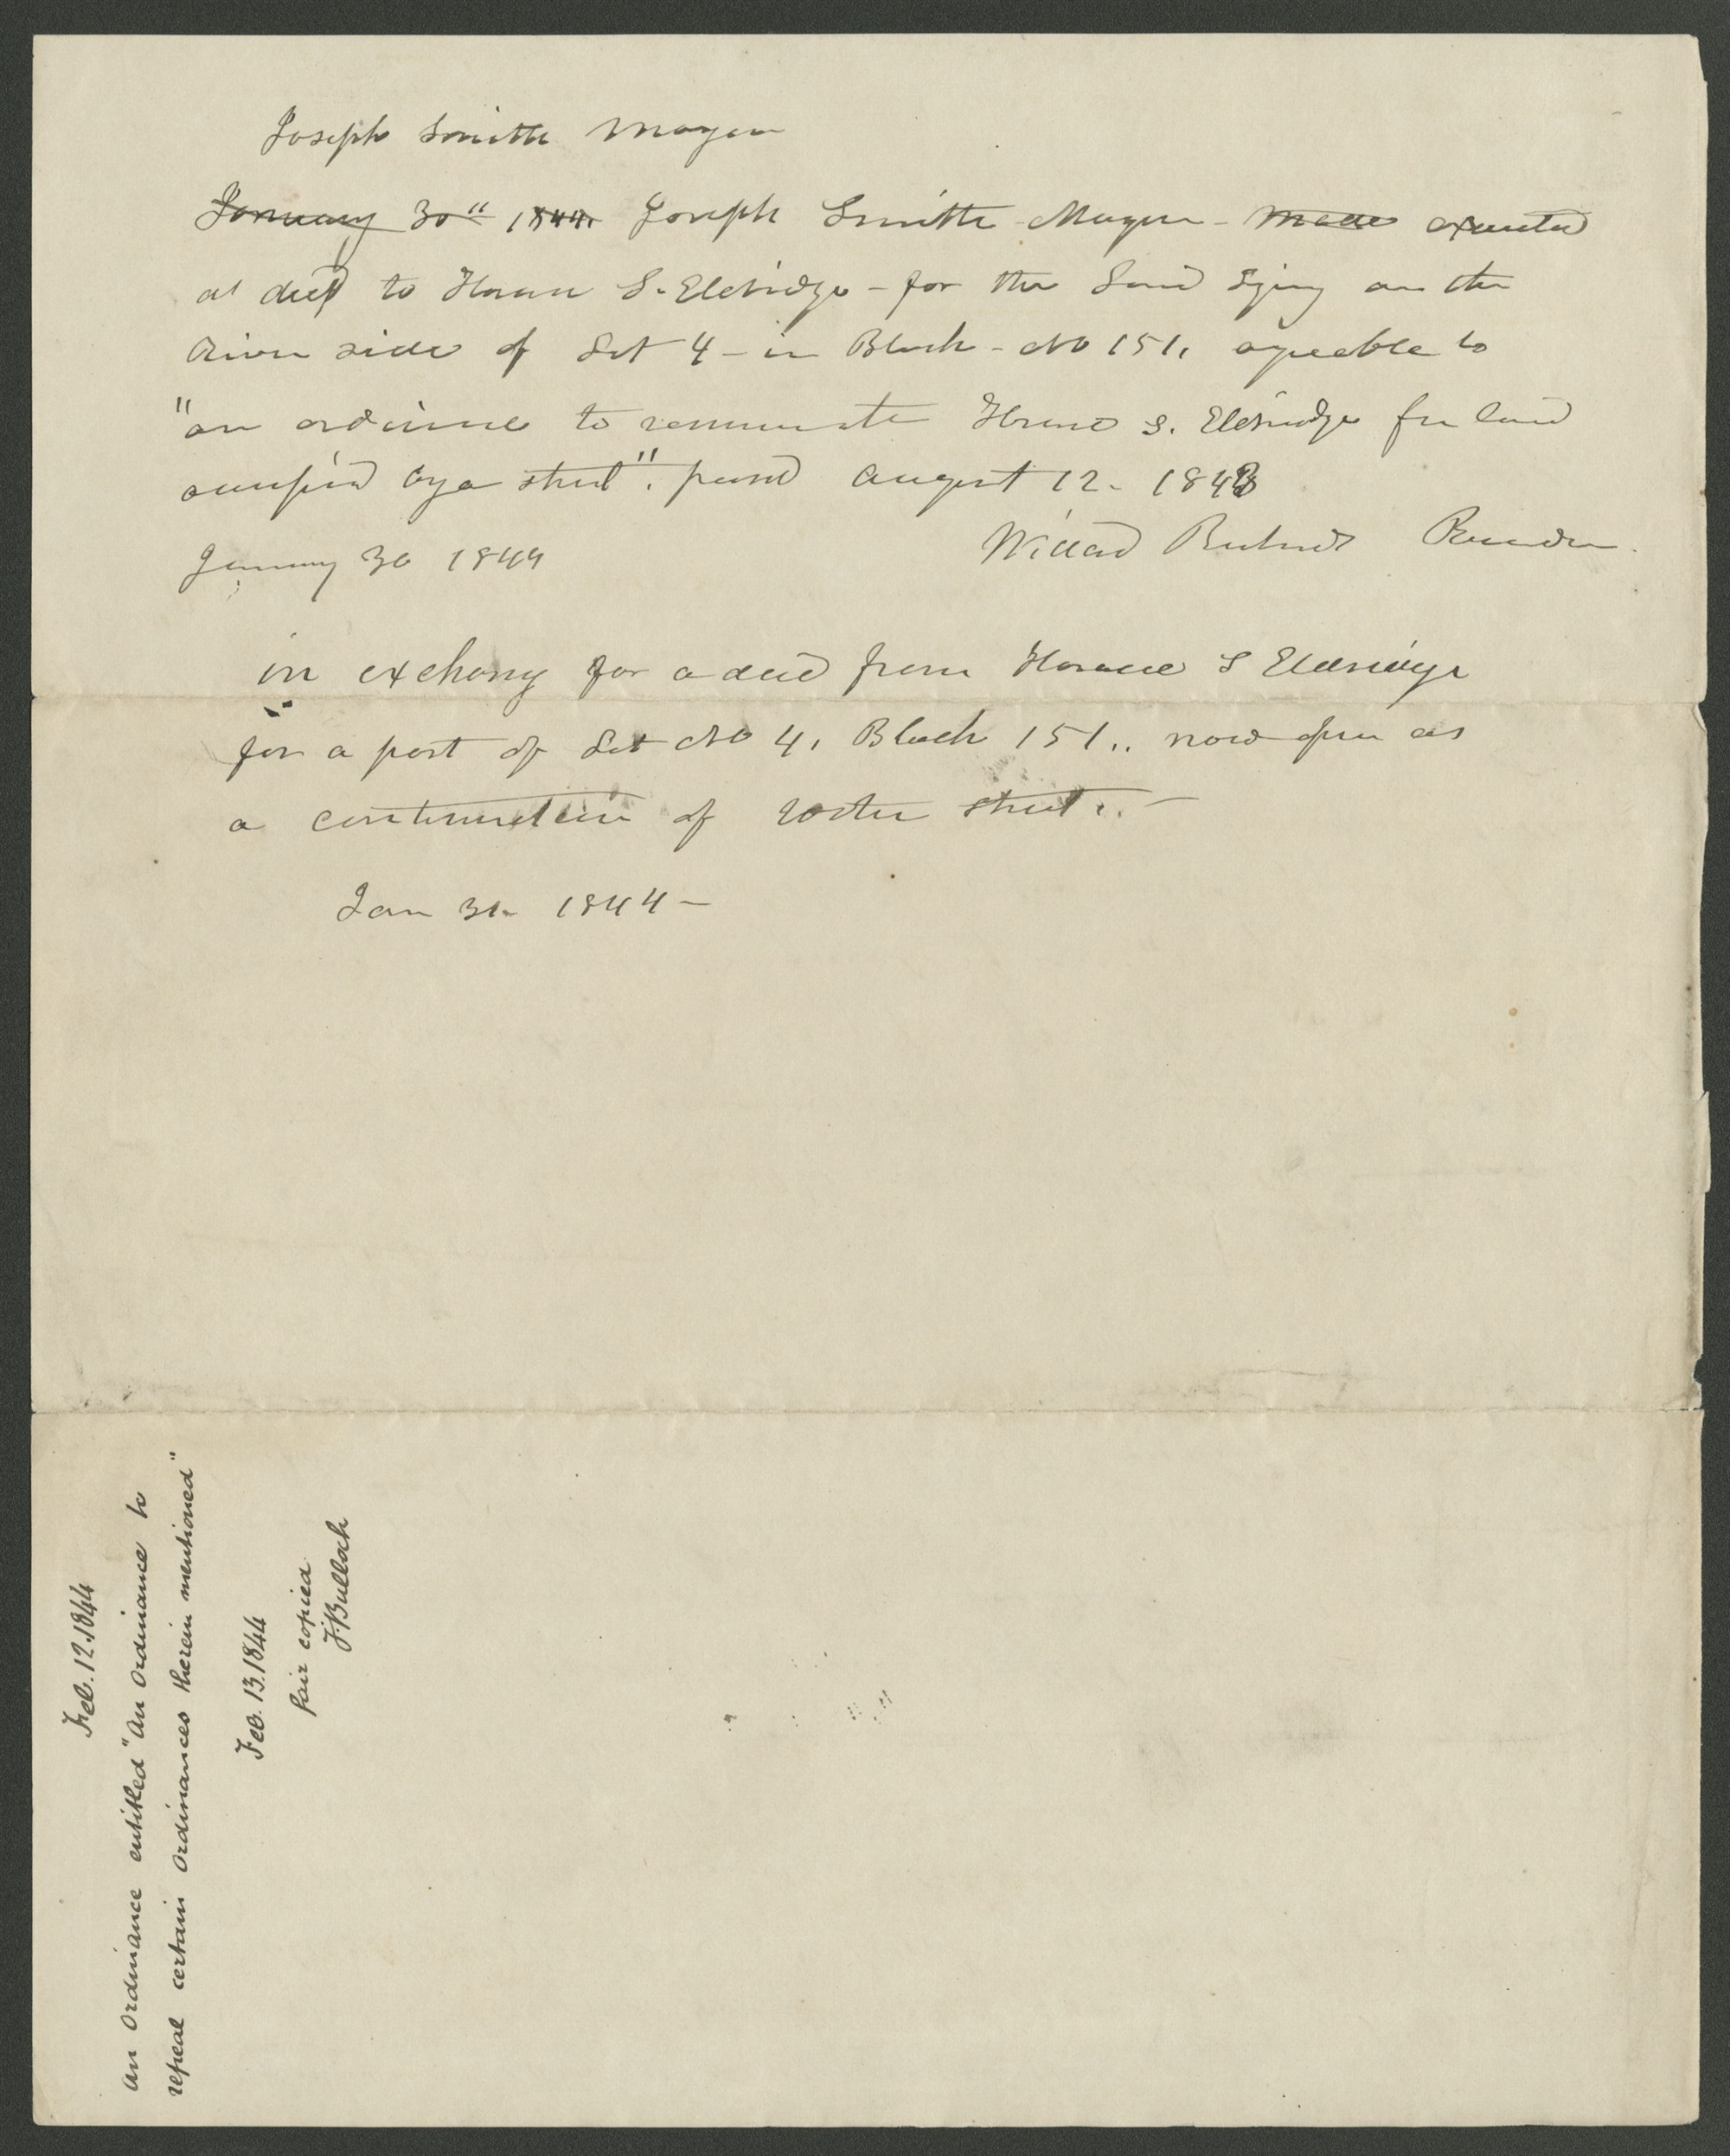 Joseph Smith Mayor
January 30" 1844. Joseph Smith Mayor - made executed
a deed to Horace S. Eldridge - for the Land Lying on the
River side of Lot 4 - in Block - No 151, agreeable to
"an ordinance to remunerate Horace S. Eldridge for land
occupied by a street". passed August 12 - 1843
January 30 1844 Willard Richards Recorder.
in exchang for a deed from Horace S Eldridge
for a part of Lot No 4, Block 151.. now open as
a continuation of Water street..—
Jan 31- 1844 —
Feb. 12. 1844
An Ordinance entitled "An Ordinance to
repeal certain Ordinances therein mentioned"
Feb. 13. 1844
fair copied
T. Bullock